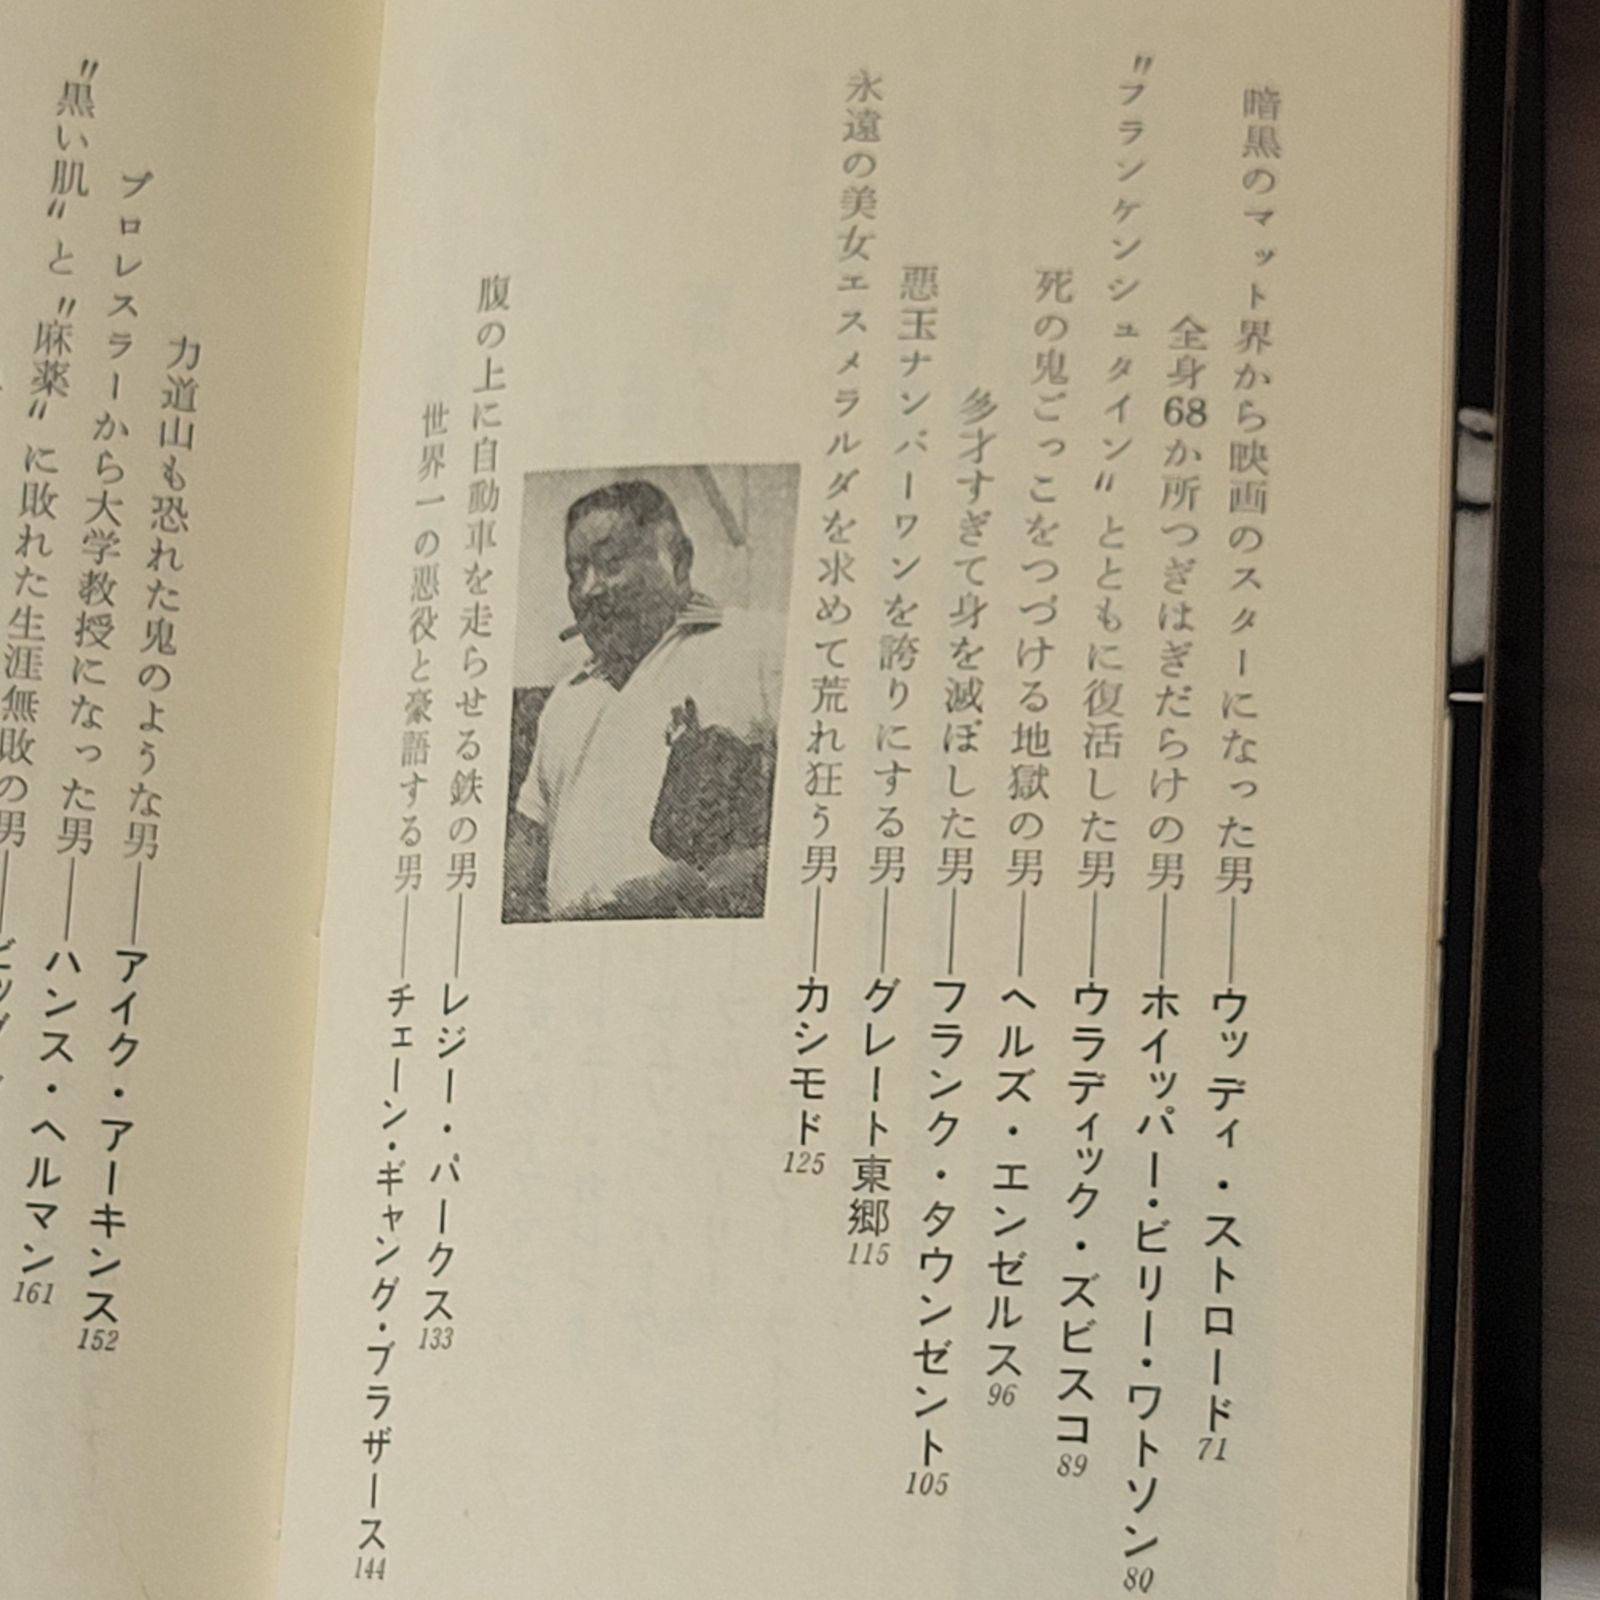 暗黒のマット界から映画のスターになった男――ウッディ・ストロード 71
全身68か所つぎはぎだらけの男――ホイッパー・ビリー・ワトソン 80
〝フランケンシュタイン〟とともに復活した男――ウラディック・ズビスコ 89
死の鬼ごっこをつづける地獄の男――ヘルズ・エンゼルス 96
多才すぎて身を滅ぼした男――フランク・タウンゼント 105
悪玉ナンバーワンを誇りにする男――グレート東郷 115
永遠の美女エスメラルダを求めて荒れ狂う男――カシモド 125
腹の上に自動車を走らせる鉄の男――レジー・パークス 133
世界一の悪役と豪語する男――チェーン・ギャング・ブラザース 144
力道山も恐れた鬼のような男――アイク・アーキンス 152
プロレスラーから大学教授になった男――ハンス・ヘルマン 161
〝黒い肌〟と〝麻薬〟に敗れた生涯無敗の男――